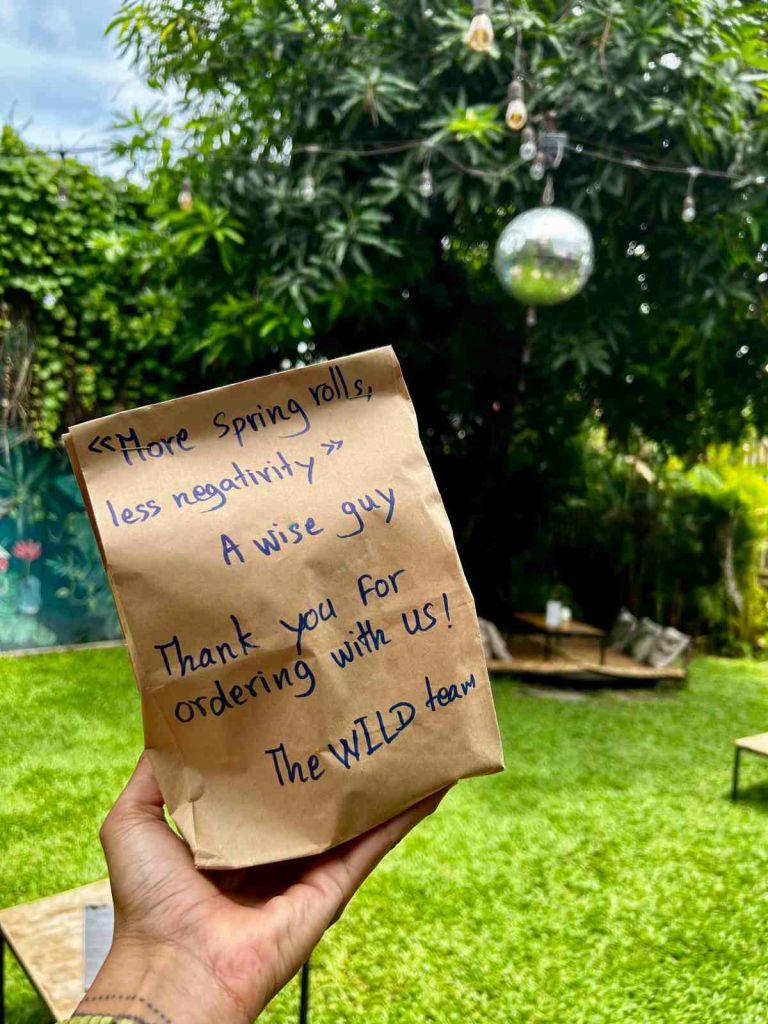 «More spring rolls,
less negativity»
A wise guy
Thank you for
ordering with us!
The WILD team